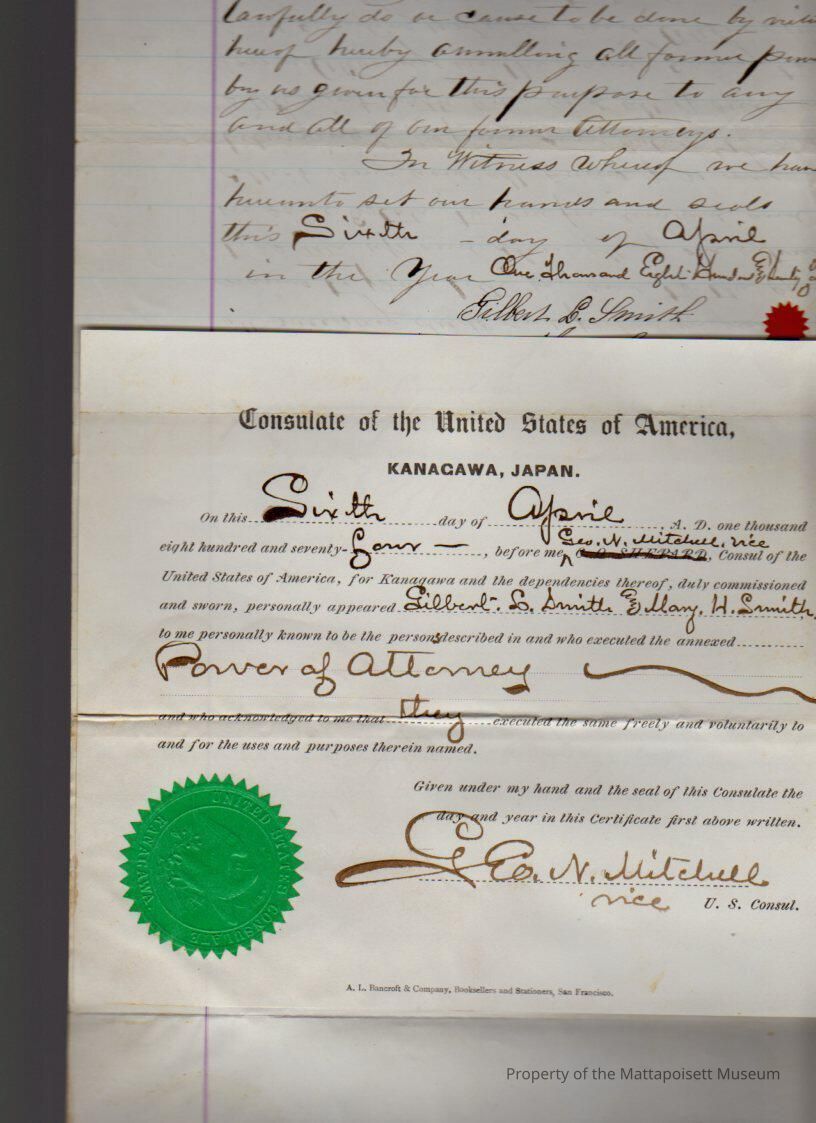 lawfully do or cause to be done by
hereof hereby annulling all former
by us given for this purpose to any
and all of our former Attorneys.
In Witness whereof we
hereunto set our hands and seals
this Sixth - day of April
in the Year One Thousand Eight Hundred &
Gilbert L. Smith
Consulate of the United States of America,
KANAGAWA, JAPAN.
On this Sixth day of April, A. D. one thousand
Geo. N. Mitchell, vice
eight hundred and seventy-four —, before me, C. O. SHEPARD, Consul of the
United States of America, for Kanagawa and the dependencies thereof, duly commissioned
and sworn, personally appeared Gilbert L. Smith & Mary H. Smith,
to me personally known to be the persons described in and who executed the annexed
Power of Attorney
and who acknowledged to me that they executed the same freely and voluntarily to
and for the uses and purposes therein named.
Given under my hand and the seal of this Consulate the
day and year in this Certificate first above written.
Geo. N. Mitchell
vice U. S. Consul.
UNITED STATES CONSULATE KANAGAWA
A. L. Bancroft & Company, Booksellers and Stationers, San Francisco.
Property of the Mattapoisett Museum